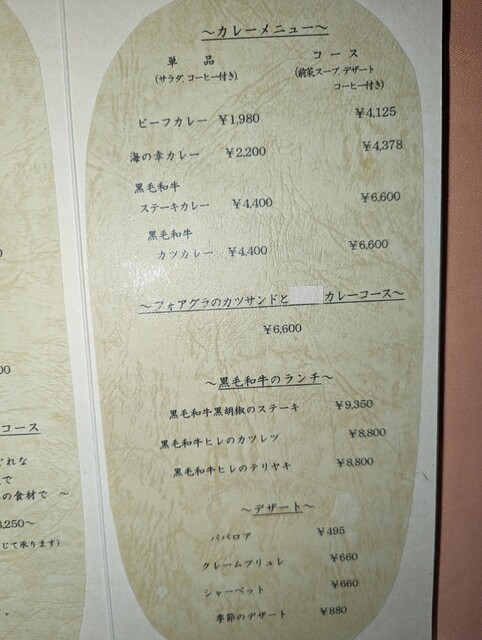 ～カレーメニュー～
単品 コース
(サラダ,コーヒー付き) (前菜スープ,デザート
コーヒー付き)
ビーフカレー ¥1,980 ¥4,125
海の幸カレー ¥2,200 ¥4,378
黒毛和牛
ステーキカレー ¥4,400 ¥6,600
黒毛和牛
カツカレー ¥4,400 ¥6,600
～フォアグラのカツサンドと カレーコース～
¥6,600
～黒毛和牛のランチ～
黒毛和牛黒胡椒のステーキ ¥9,350
黒毛和牛ヒレのカツレツ ¥8,800
黒毛和牛ヒレのテリヤキ ¥8,800
～デザート～
ババロア ¥495
クレームブリュレ ¥660
シャーベット ¥660
季節のデザート ¥880
コース
で
の食材で ～
,250～
じて承ります)